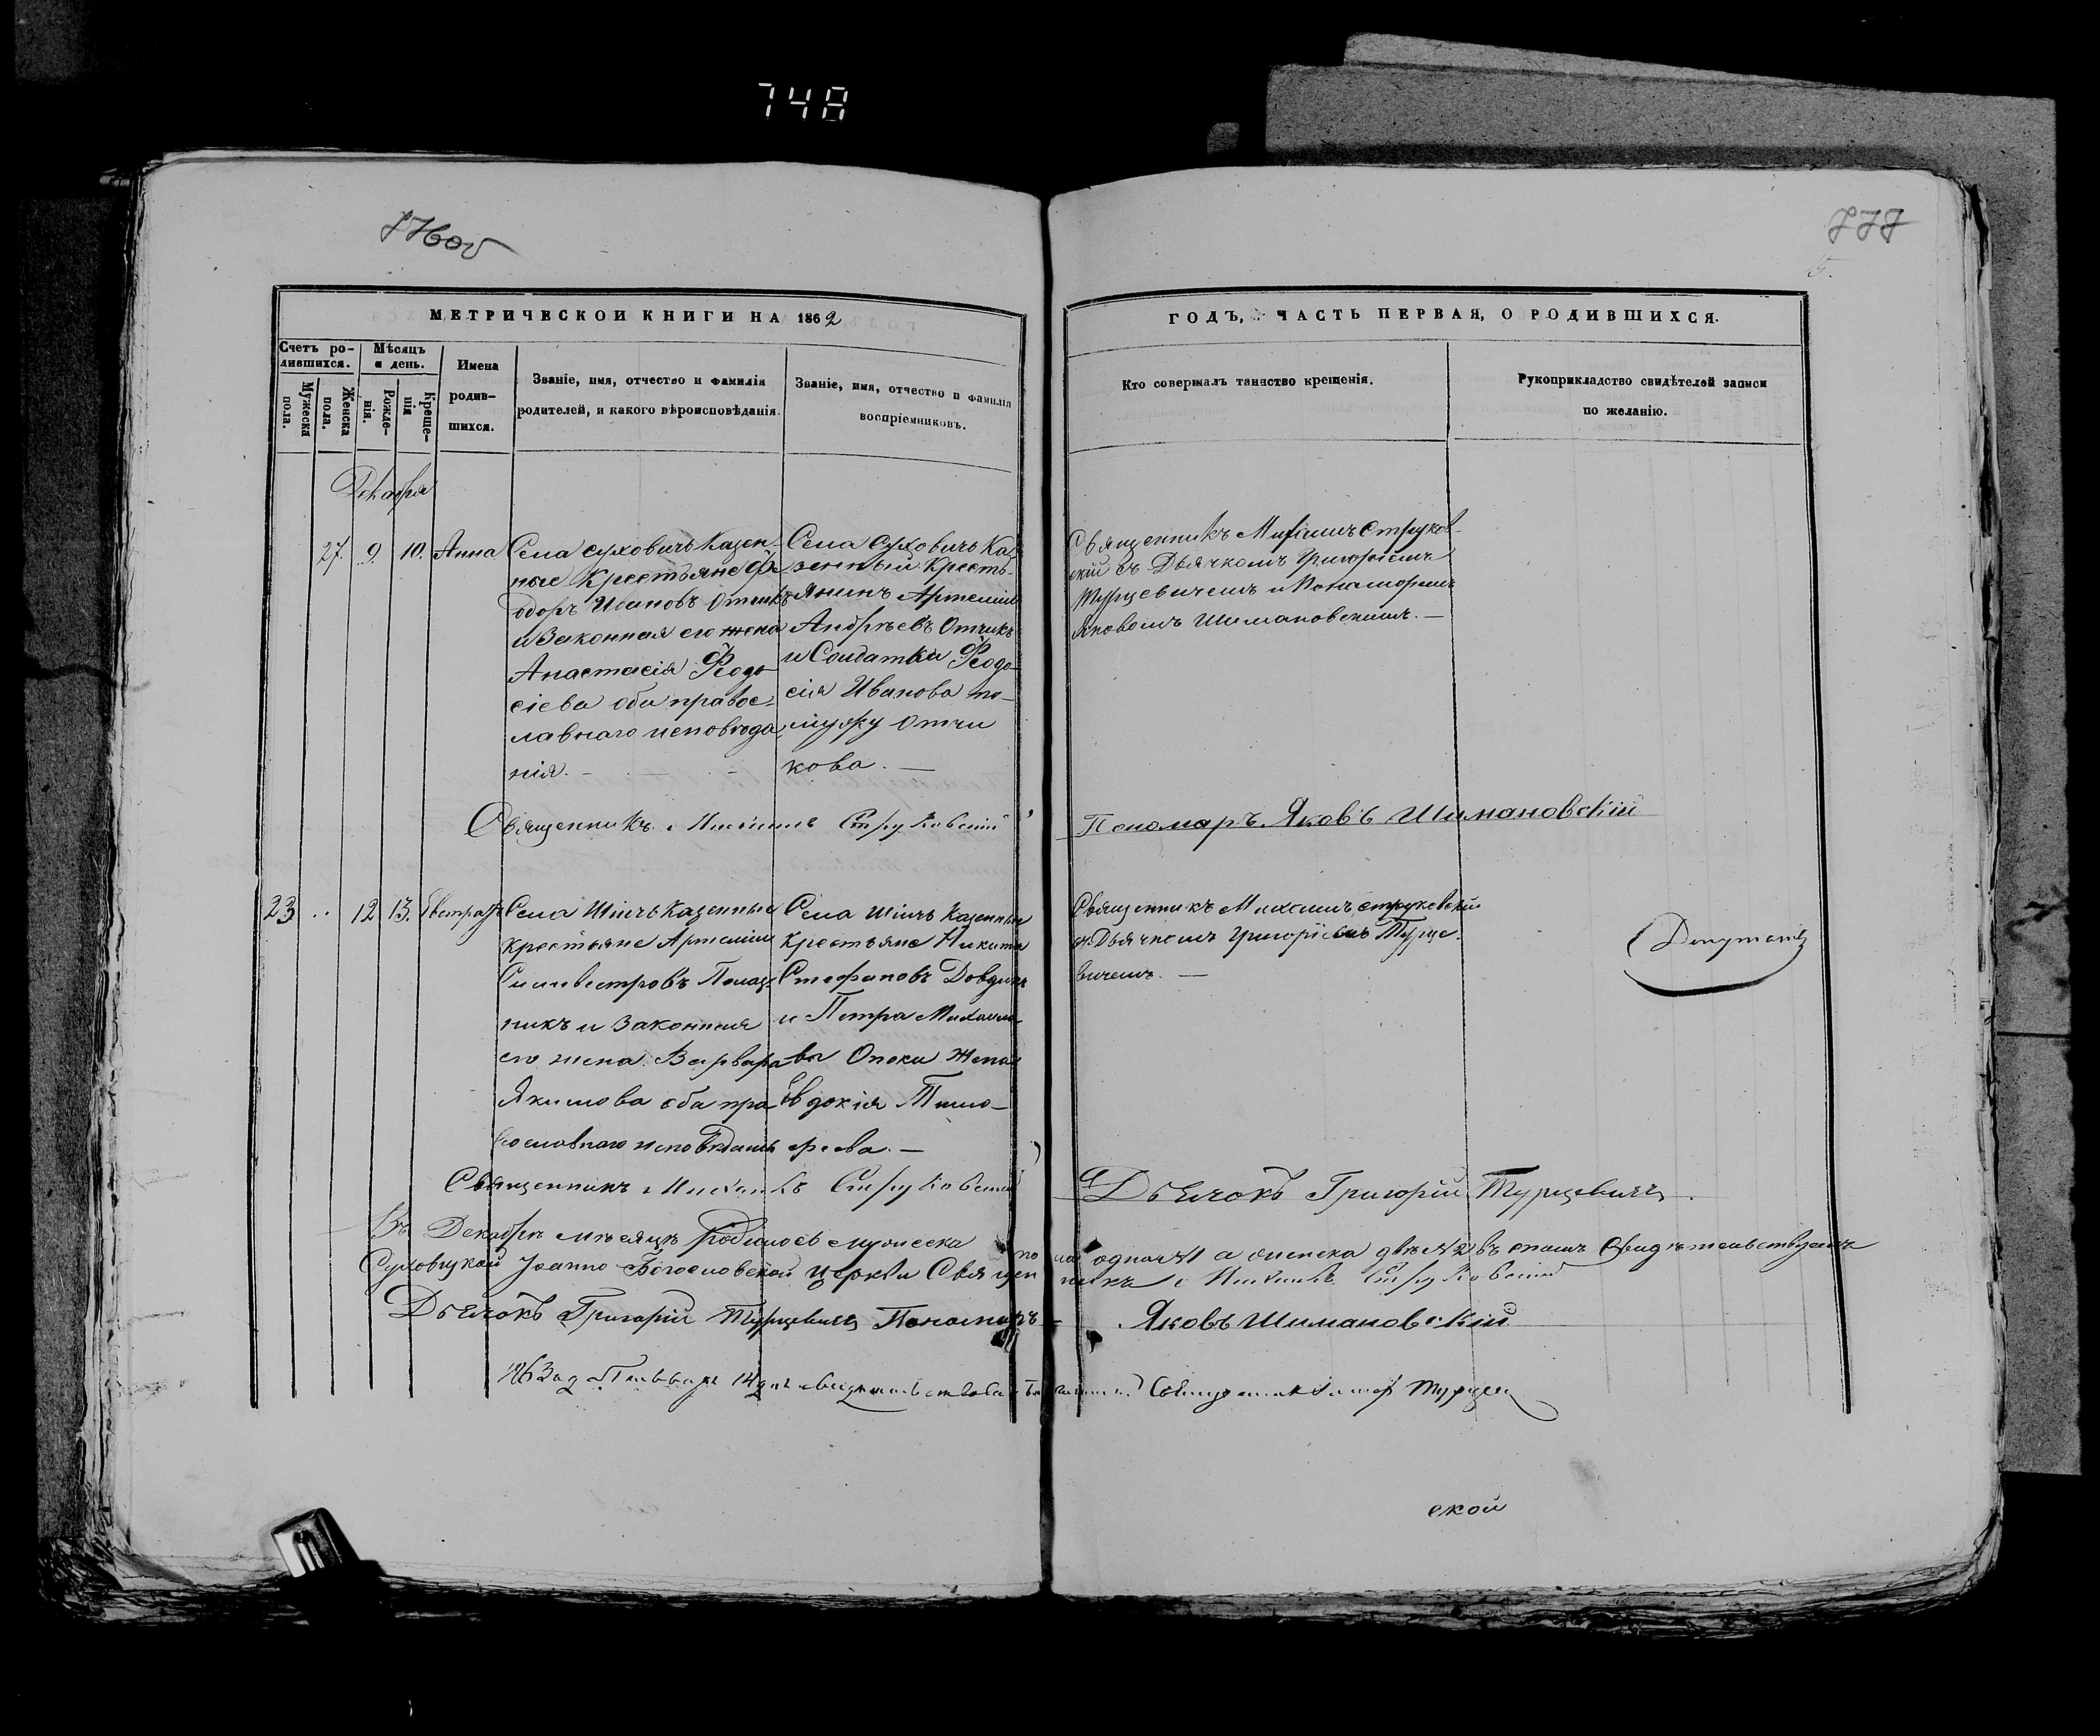 748
776об
777
5.
МЕТРИЧЕСКОЙ КНИГИ НА 1862
ГОДЪ, ЧАСТЬ ПЕРВАЯ, О РОДИВШИХСЯ.
Счетъ ро-
дившихся.
Мужеска
пола.
Женска
пола.
Мѣсяцъ
и день.
Рожде-
нія.
Креще-
нія.
Имена
родив-
шихся.
Званіе, имя, отчество и фамилія
родителей, и какого вѣроисповѣданія.
Званіе, имя, отчество и фамилія
воспріемниковъ.
Кто совершалъ таинство крещенія.
Рукоприкладство свидѣтелей записи
по желанію.
Декабря
27. 9. 10. Анна
Села Суховичъ Казен-
ные Крестьяне Фе
одоръ Ивановъ Отчикъ
и Законная его жена
Анастасія Феодо
сіева оба правос-
лавнаго исповѣда
нія. —
Села Суховичъ Ка
зенный Кресть-
янинъ Артемій
Андреевъ Отчикъ
и Солдатка Феодо-
сія Иванова по-
мужу Отчи
кова. —
Священникъ Михаилъ Струков-
скій съ Дьячкомъ Григоріемъ
Турцевичемъ и Понамаремъ
Яковомъ Шимановскимъ. —
Священникъ Михаилъ Струковскій
Пономаръ Яковъ Шимановскій
23 .. 12 13. Евстратъ
Села Шичъ Казенные
крестьяне Артемій
Сильвестровъ
никъ и Законная
его жена Варвара
Якимова оба пра
вославнаго исповѣданія
Села Шичъ Казенные
крестьяне Никита
Стефановъ
и Петра Михаило
ва Опоки жена
Евдокія Тимо-
феева. —
Священникъ Михаилъ Струковскій
съ Дьячкомъ Григоріемъ Турце-
вичемъ. —
Священникъ Михаилъ Струковскій
Дьячокъ Григорій Турцевичъ.
Въ Декабрѣ мѣсяцѣ родилось мужеска пола одинъ №1 а женска двѣ №2 въ чемъ свидѣтельствуемъ
Суховицкой Іоанно-Богословской церкви Священникъ Михаилъ Струковскій
Дьячокъ Григорій Турцевичъ Пономаръ Яковъ Шимановскій
1863 года Января 14 дня свидѣтельствовалъ
ской